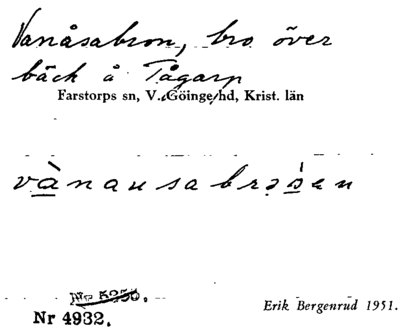 Vanåsabron, bro över
bäck å Tågarp
Farstorps sn, V. Göinge hd, Krist. län
vànausabrɔs̀en
No 5950.
Nr 4932.
Erik Bergenrud 1951.